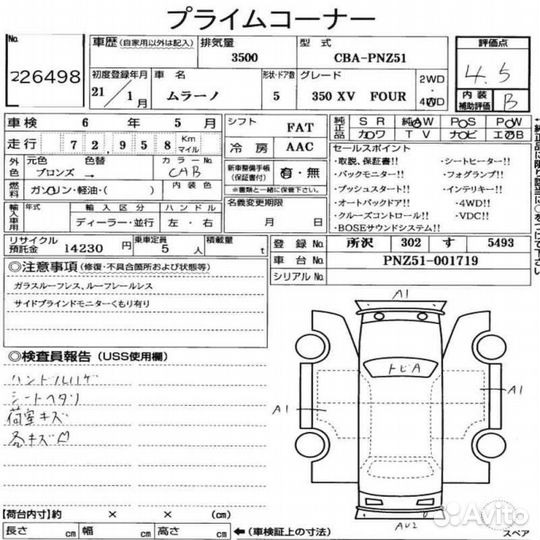 プライムコーナー
No. 26498
車歴 (自家用以外は記入) 排気量 3500 型式 CBA-PNZ51
初度登録年月 21年 1月 車名 ムラーノ 形状・ドア数 5 グレード 350 XV FOUR 2WD・4WD
評価点 4.5
内装補助評価 B
車検 6年 5月 シフト FAT
走行 72,958 Km マイル 冷房 AAC
純正品 SR 純AW PS PW
カワ TV ナビ エアB
外色 元色 ブロンズ → 色替 カラーNo. CAB
燃料 ガソリン・軽油・( ) 内装色
新車整備手帳(保証書付) 有・無
※書類と一緒に保管して下さい。
名義変更期限 月 日
輸入車用 年式 輸入区分 ディーラー・並行 ハンドル 左・右
リサイクル預託金 14230 円 乗車定員 5 人 積載量 t
セールスポイント
・取説、保証書!! ・シートヒーター!!
・バックモニター!! ・フォグランプ!!
・プッシュスタート!! ・インテリキー!!
・オートバックドア!! ・4WD!!
・クルーズコントロール!! ・VDC!!
・BOSEサウンドシステム!!
登録No. 所沢 302 す 5493
車台No. PNZ51-001719
シリアルNo.
◎注意事項 (修復・不具合箇所および状態等)
ガラスルーフレス、ルーフレールレス
サイドブラインドモニターくもり有り
◎検査員報告 (USS使用欄)
ハンドルハゲ
シートヘタリ
荷室キズ
各キズ凹
A1
トビA
A1
A1
AU2
【荷台内寸】約 × × (cm)
長さ cm 幅 cm 高さ cm ←(車検証上の寸法)
スペア
Avito